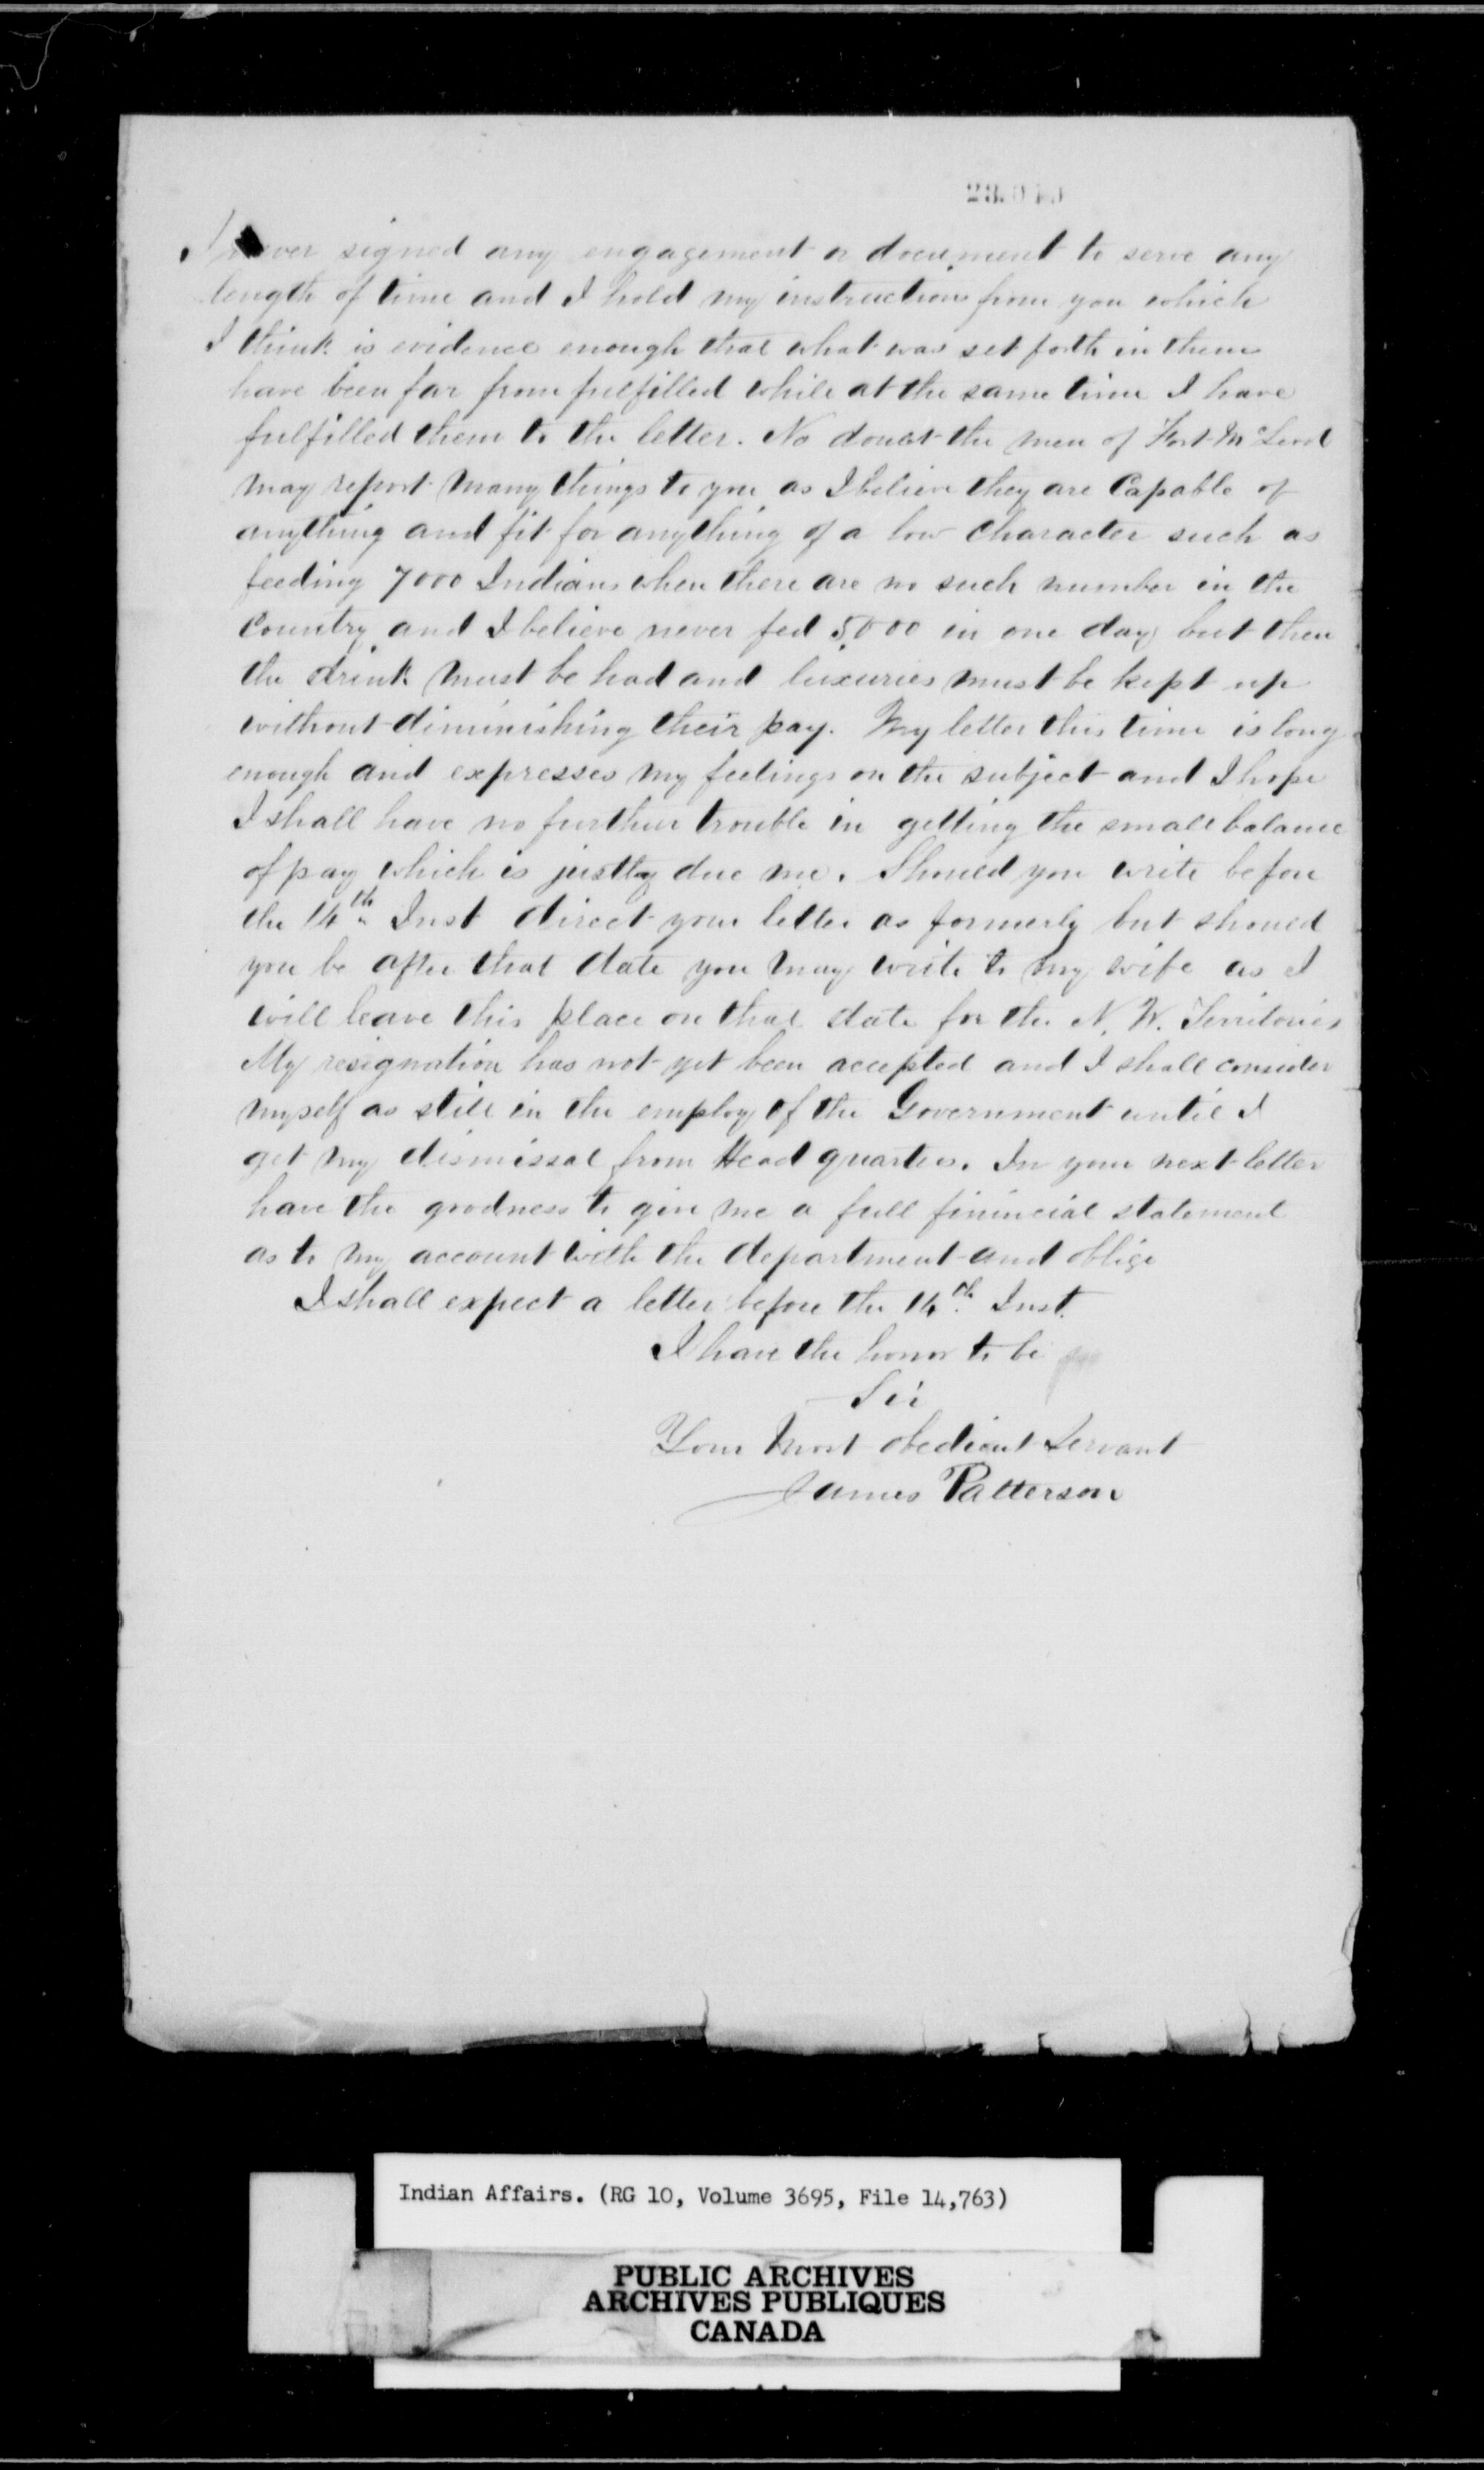 I never signed any engagement or document to serve any
length of time and I hold my instructions from you which
I think is evidence enough that what was set forth in them
have been far from fulfilled while at the same time I have
fulfilled them to the letter. No doubt the men of Fort McLeod
may report many things to you as I believe they are Capable of
anything and fit for anything of a low character such as
feeding 7000 Indians when there are no such number in the
Country and I believe never fed 5000 in one day but then
the drink must be had and luxuries must be kept up
without diminishing their pay. My letter this time is long
enough and expresses my feelings on the subject and I hope
I shall have no further trouble in getting the small balance
of pay which is justly due me. Should you write before
the 14th Inst direct your letter as formerly but should
you be after that date you may write to my wife as I
will leave this place on that date for the N. W. Territories
My resignation has not yet been accepted and I shall consider
myself as still in the employ of the Government until I
get my dismissal from Head quarters. In your next letter
have the goodness to give me a full finincial statement
as to my account with the department and oblige
I shall expect a letter before the 14th Inst.
I have the honor to be
Sir
Your most obedient Servant
James Patterson
Indian Affairs. (RG 10, Volume 3695, File 14,763)
PUBLIC ARCHIVES
ARCHIVES PUBLIQUES
CANADA